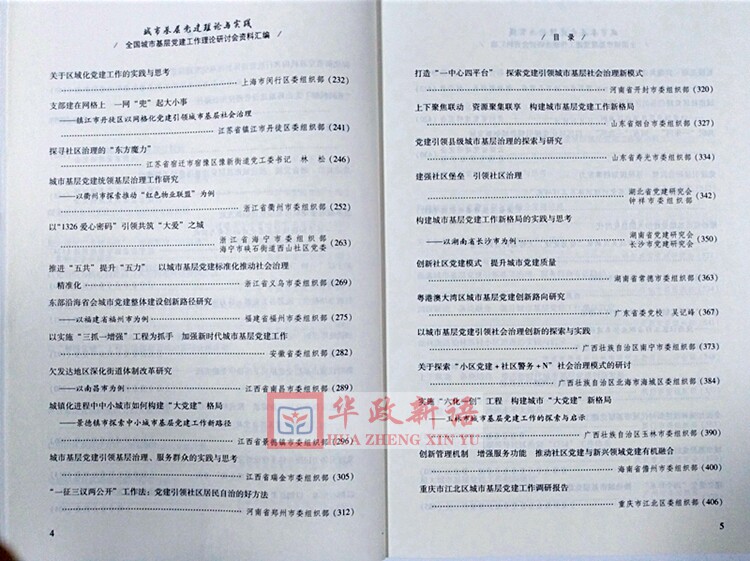 城市基层党建理论与实践
全国城市基层党建工作理论研讨会资料汇编
关于区域化党建工作的实践与思考
上海市闵行区委组织部 (232)
支部建在网格上 一网“兜”起大小事
——镇江市丹徒区以网格化党建引领城市基层社会治理
江苏省镇江市丹徒区委组织部 (241)
探寻社区治理的“东方魔力”
江苏省宿迁市宿豫区豫新街道党工委书记 林松 (246)
城市基层党建统领基层治理工作研究
——以衢州市探索推动“红色物业联盟”为例
浙江省衢州市委组织部 (252)
以“1326爱心密码”引领共筑“大爱”之城
浙江省海宁市委组织部
海宁市硖石街道西山社区党委 (263)
推进“五共”提升“五力” 以城市基层党建标准化推动社会治理
精准化 浙江省义乌市委组织部 (269)
东部沿海省会城市党建整体建设创新路径研究
——以福建省福州市为例 福建省福州市委组织部 (275)
以实施“三抓一增强”工程为抓手 加强新时代城市基层党建工作
安徽省委组织部 (282)
欠发达地区深化街道体制改革研究
——以南昌市为例 江西省南昌市委组织部 (289)
城镇化进程中中小城市如何构建“大党建”格局
——景德镇市探索中小城市基层党建工作新路径
江西省景德镇市委组织部 (296)
城市基层党建引领基层治理、服务群众的实践与思考
江西省瑞金市委组织部 (305)
“一征三议两公开”工作法：党建引领社区居民自治的好方法
河南省郑州市委组织部 (312)
4
/ 目录 /
打造“一中心四平台” 探索党建引领城市基层社会治理新模式
河南省开封市委组织部 (320)
上下聚焦联动 资源聚集联享 构建城市基层党建工作新格局
山东省烟台市委组织部 (327)
党建引领县级城市基层治理的探索与研究
山东省寿光市委组织部 (334)
建强社区堡垒 引领社区治理
湖北省党建研究会
钟祥市委组织部 (342)
构建城市基层党建工作新格局的实践与思考
——以湖南省长沙市为例
湖南省党建研究会
长沙市党建研究会 (350)
创新社区党建模式 提升城市党建质量
湖南省常德市委组织部 (363)
粤港澳大湾区城市基层党建创新路向研究
广东省委党校 吴记峰 (367)
以城市基层党建引领社会治理创新的探索与实践
广西壮族自治区南宁市委组织部 (373)
关于探索“小区党建+社区警务+N”社会治理模式的研讨
广西壮族自治区北海市海城区委组织部 (384)
实施“六化一创”工程 构建城市“大党建”新格局
——玉林市城市基层党建工作的探索与启示
广西壮族自治区玉林市委组织部 (390)
创新管理机制 增强服务功能 推动社区党建与新兴领域党建有机融合
海南省儋州市委组织部 (400)
重庆市江北区城市基层党建工作调研报告
重庆市江北区委组织部 (406)
5
华政新语
HUA ZHENG XIN YU